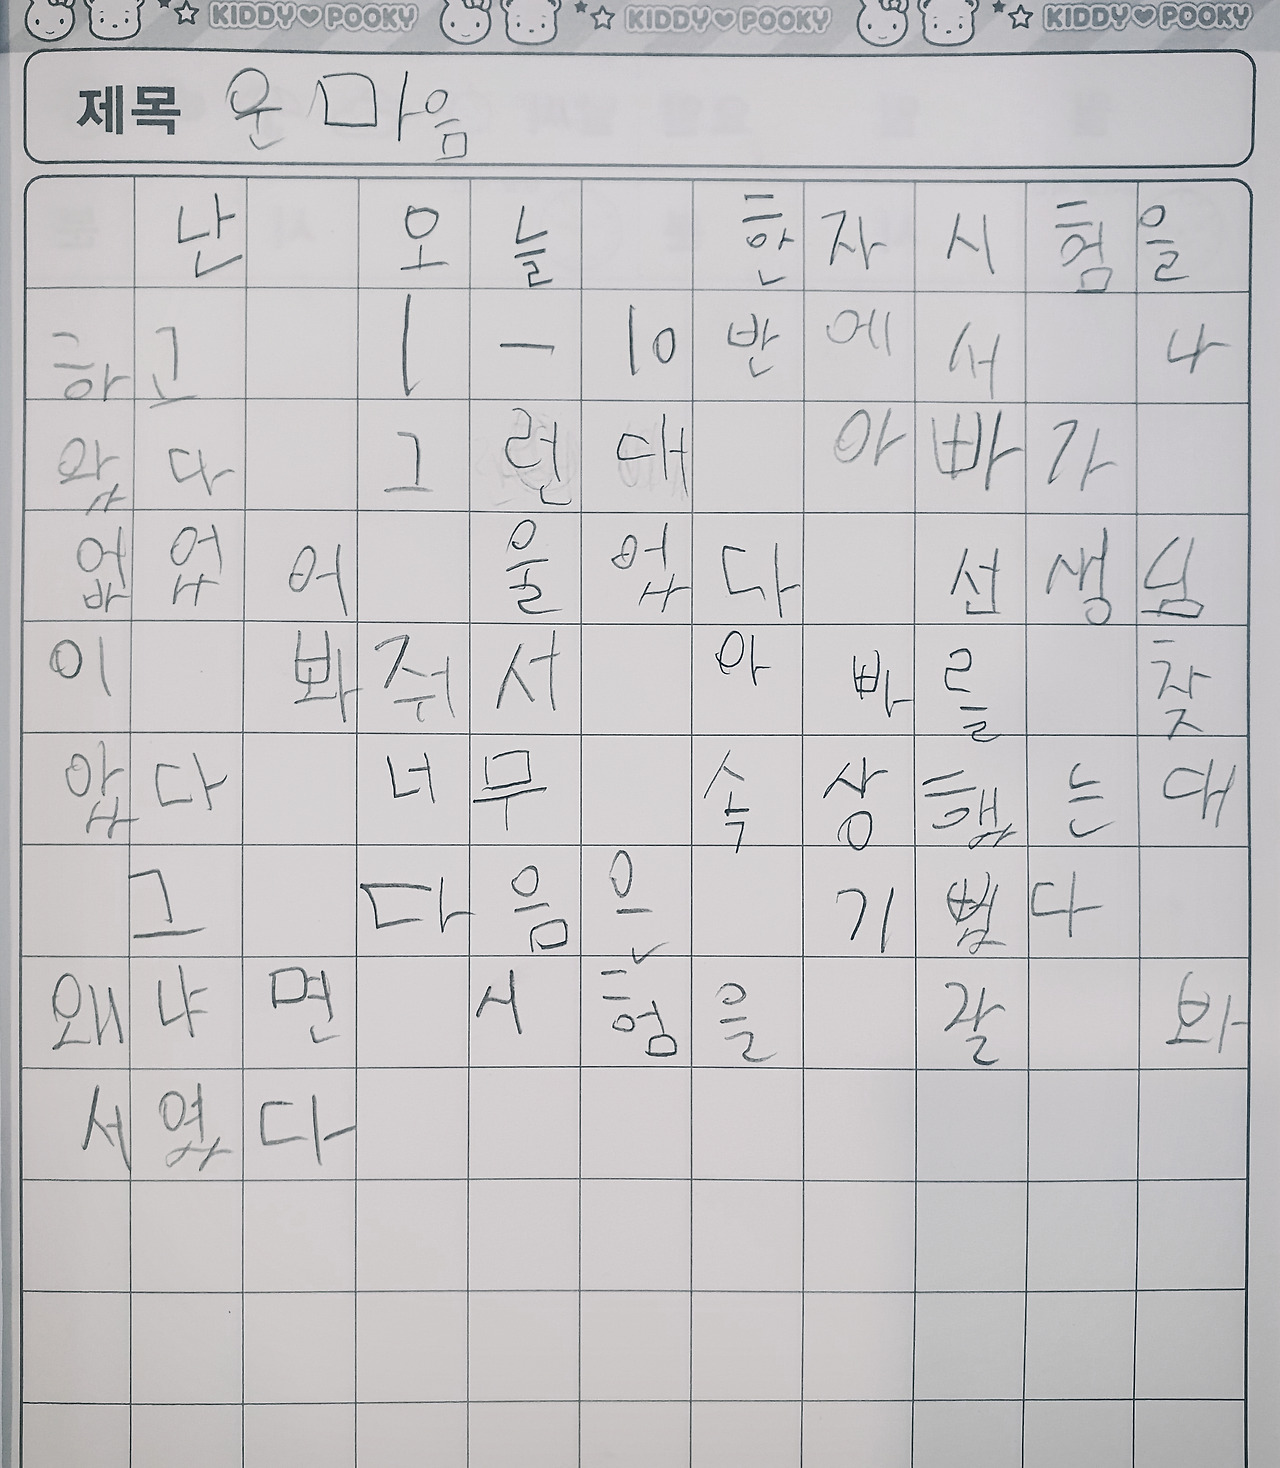 KIDDY♥POOKY KIDDY♥POOKY KIDDY♥POOKY
제목 운 마음
난 오늘 한자시험을
하고 1-10반에서 나
왔다 그런대 아빠가
없었어 울었다 선생님
이 봐줘서 아빠를 찾
았다 너무 속상했는대
그 다음은 기뻤다
왜냐면 시험을 잘 봐
서였다